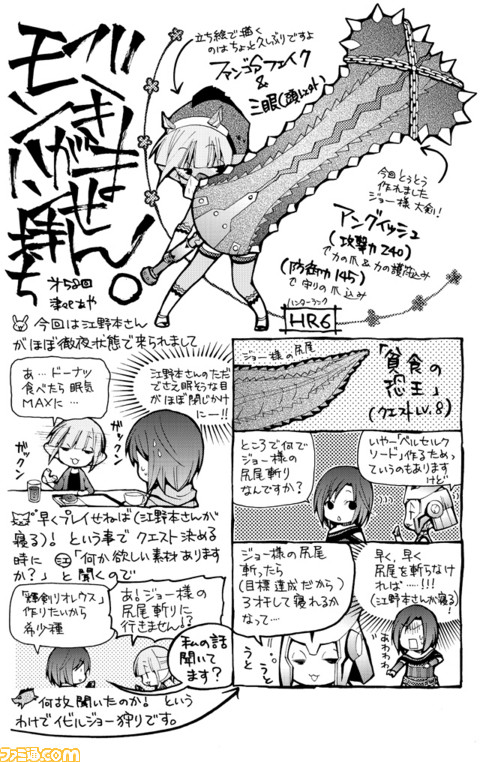 モンハン持ち
がいきません!
第58回
まくらあや
立ち絵で描く
のはちょと久しぶりですよ
ファンゴフェイク
&
三眼(頭以外)
今回とうとう
作れました
ジョー様 大剣!
アングイッシュ
(攻撃力 240)
で力の爪&力の護符込み
(防御力 145)
で守りの爪 込み
ハンターランク
HR6
今回は江野本さん
がほぼ徹夜状態で来られまして
あ…ドーナツ
食べたら 眠気
MAXに…
江野本さんのただ
でさえ眠そうな目
がほぼ閉じかけ
にー!!
ガックン
ガックン
早くプレイせねば(江野本さんが
寝る)! という事で クエスト決める
時に 江「何か欲しい素材あります
か?」と聞くので
「輝剣リオレウス」
作りたいから
希少種
あ!ジョー様の
尻尾斬りに
行きません!?
私の話
聞いて
ます?
何故聞いたのか! という
わけでイビルジョー狩りです。
ジョー様の尻尾
「貪食の
恐王」
(クエストLv.8)
ところで何で
ジョー様の
尻尾斬り
なんですか?
いやー「ベルセルク
ソード」作るためっ
ていうのもあります
けど
ジョー様の尻尾
斬ったら
(目標達成だから)
3オチして寝れるか
なって…
うと
うと
早く、早く
尻尾を斬らなけ
れば……!!!
(江野本さんが寝る)
あわわわ
ファミ通.com